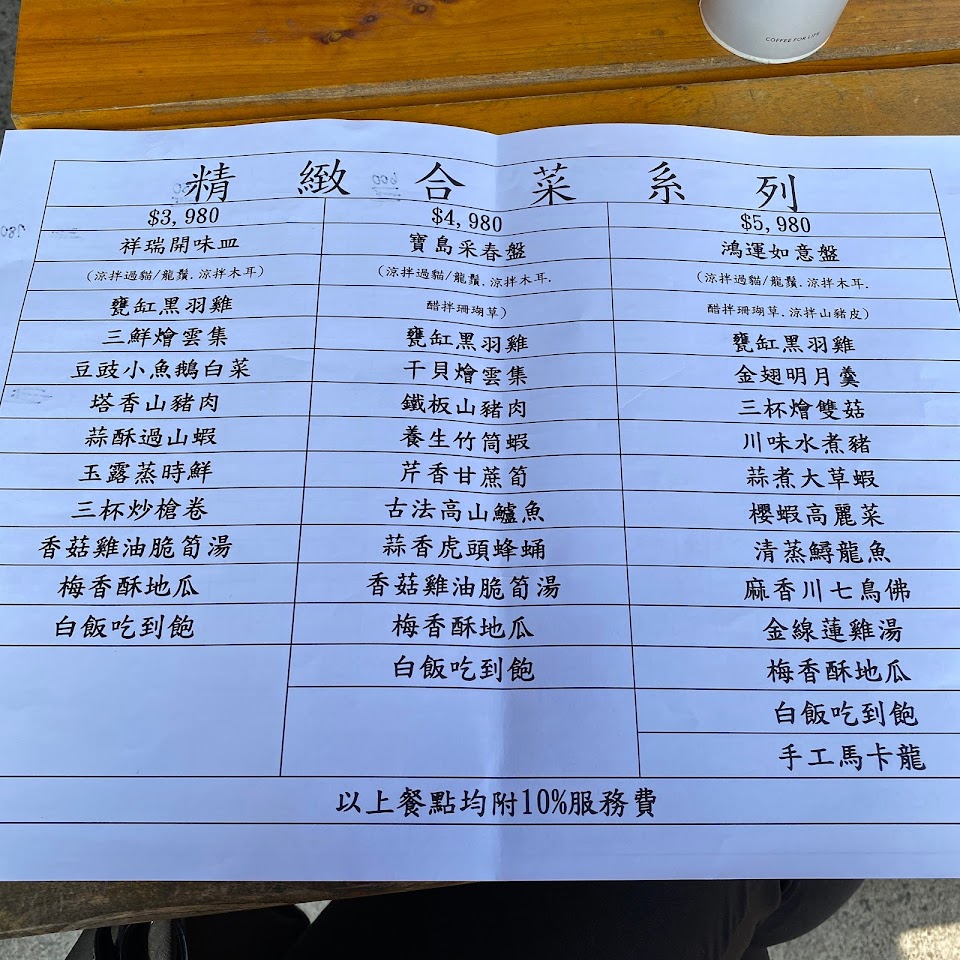 COFFEE FOR LIFE
精緻合菜系列
$3,980
祥瑞開味皿
(涼拌過貓/龍鬚.涼拌木耳)
甕缸黑羽雞
三鮮燴雲集
豆豉小魚鵝白菜
塔香山豬肉
蒜酥過山蝦
玉露蒸時鮮
三杯炒槍卷
香菇雞油脆筍湯
梅香酥地瓜
白飯吃到飽
$4,980
寶島采春盤
(涼拌過貓/龍鬚.涼拌木耳.
醋拌珊瑚草)
甕缸黑羽雞
干貝燴雲集
鐵板山豬肉
養生竹筒蝦
芹香甘蔗筍
古法高山鱸魚
蒜香虎頭蜂蛹
香菇雞油脆筍湯
梅香酥地瓜
白飯吃到飽
$5,980
鴻運如意盤
(涼拌過貓/龍鬚.涼拌木耳.
醋拌珊瑚草.涼拌山豬皮)
甕缸黑羽雞
金翅明月羹
三杯燴雙菇
川味水煮豬
蒜煮大草蝦
櫻蝦高麗菜
清蒸鱘龍魚
麻香川七鳥佛
金線蓮雞湯
梅香酥地瓜
白飯吃到飽
手工馬卡龍
以上餐點均附10%服務費